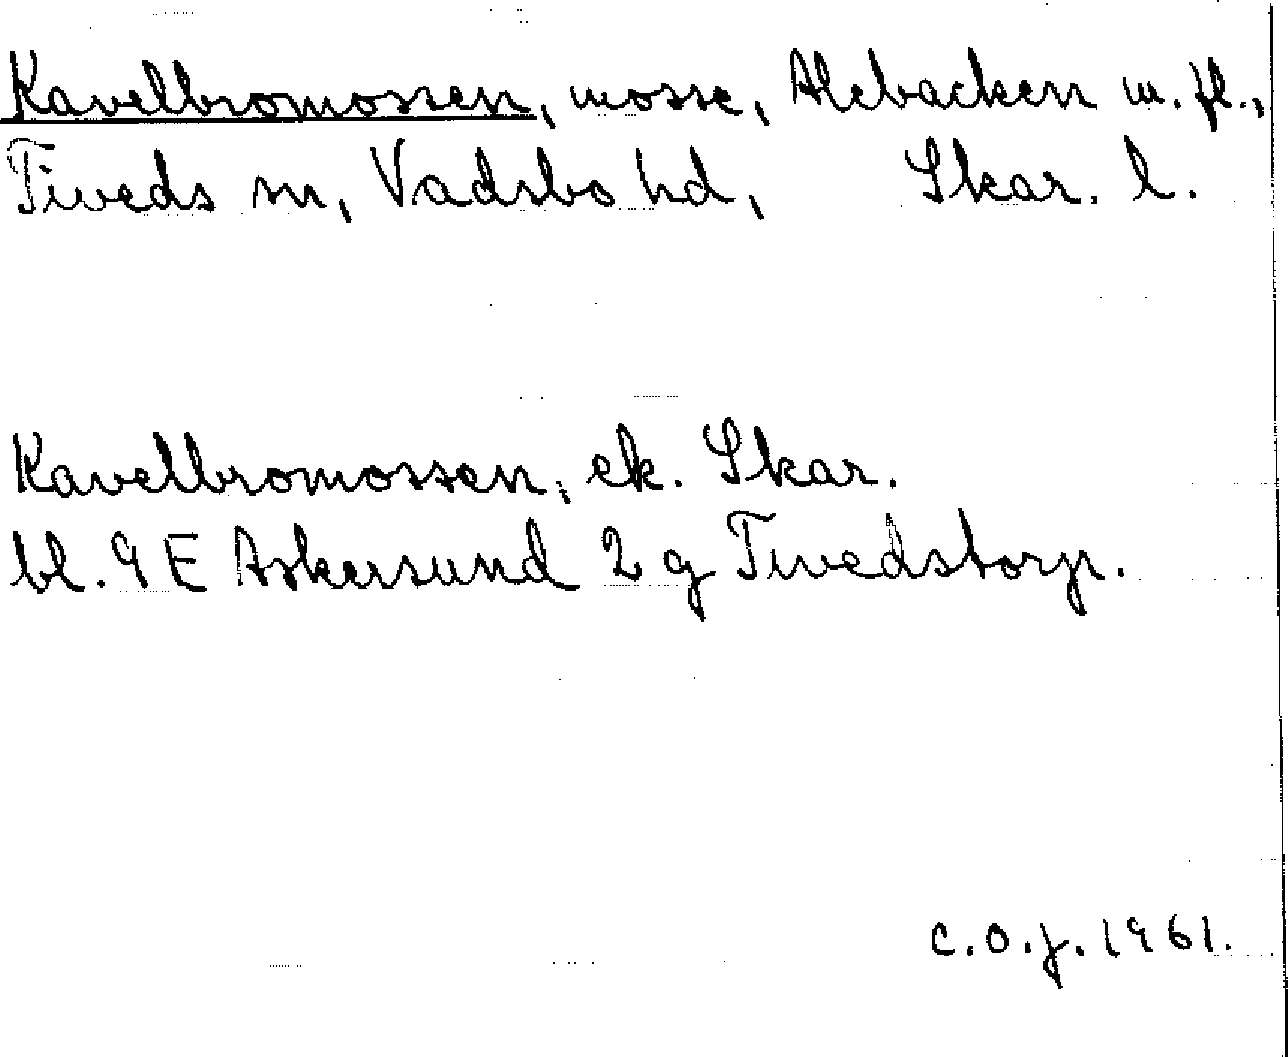 Kavelbromossen, mosse, Alebacken m.fl.,
Tiveds sn, Vadsbo hd, Skar. l.
Kavelbromossen, ek. Skar.
bl. 9 E Askersund 2 g Tivedstorp.
C.O.J. 1961.